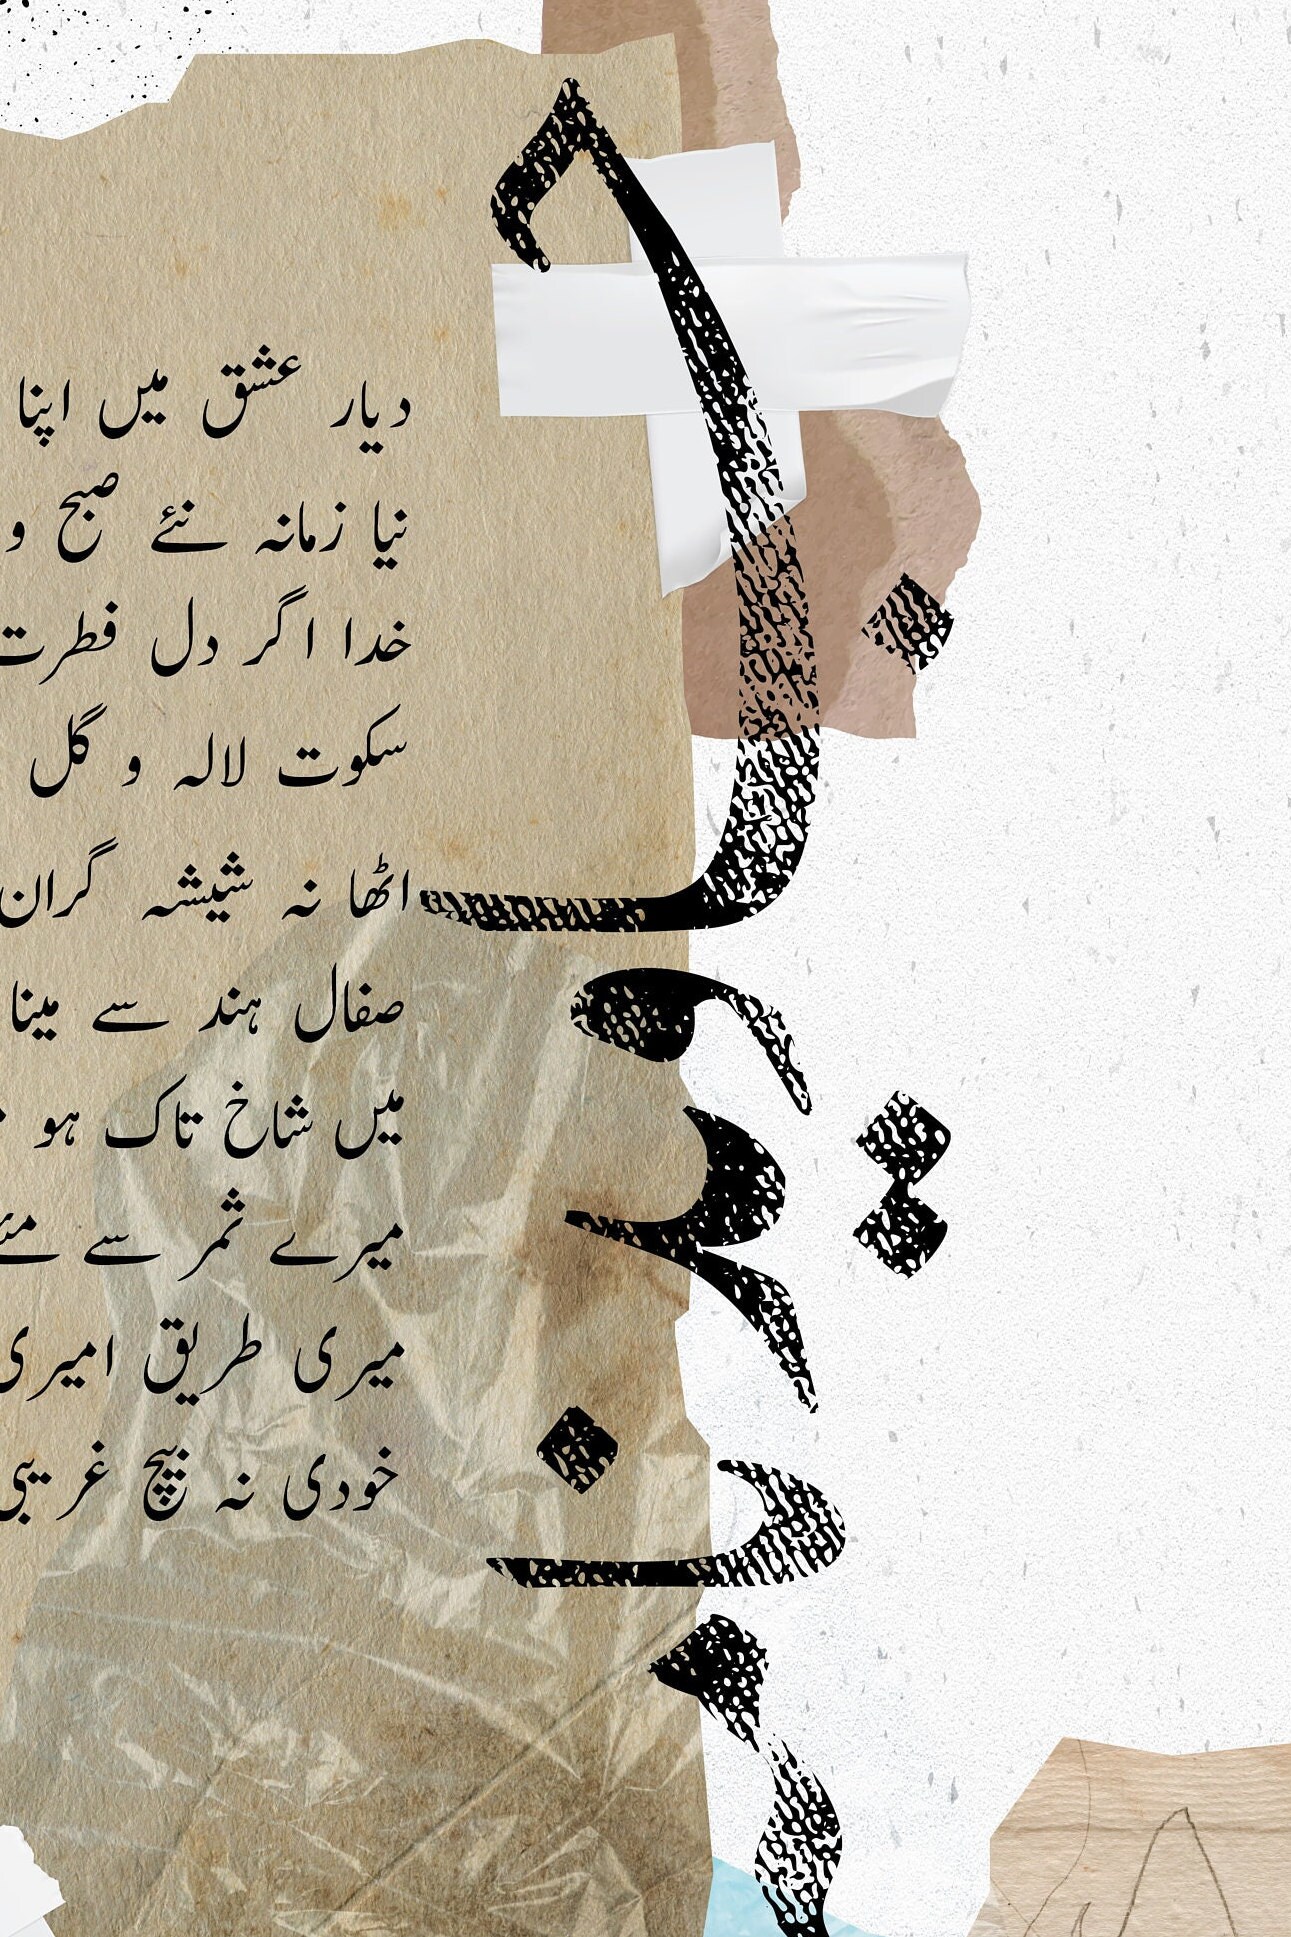 دیار عشق میں اپنا
نیا زمانہ نئے صبح و
خدا اگر دل فطرت
سکوت لالہ و گل
اٹھا نہ شیشہ گران
صفال ہند سے مینا
میں شاخ تاک ہو
میرے ثمر سے مئے
میری طریق امیری
خودی نہ بیچ غریبی